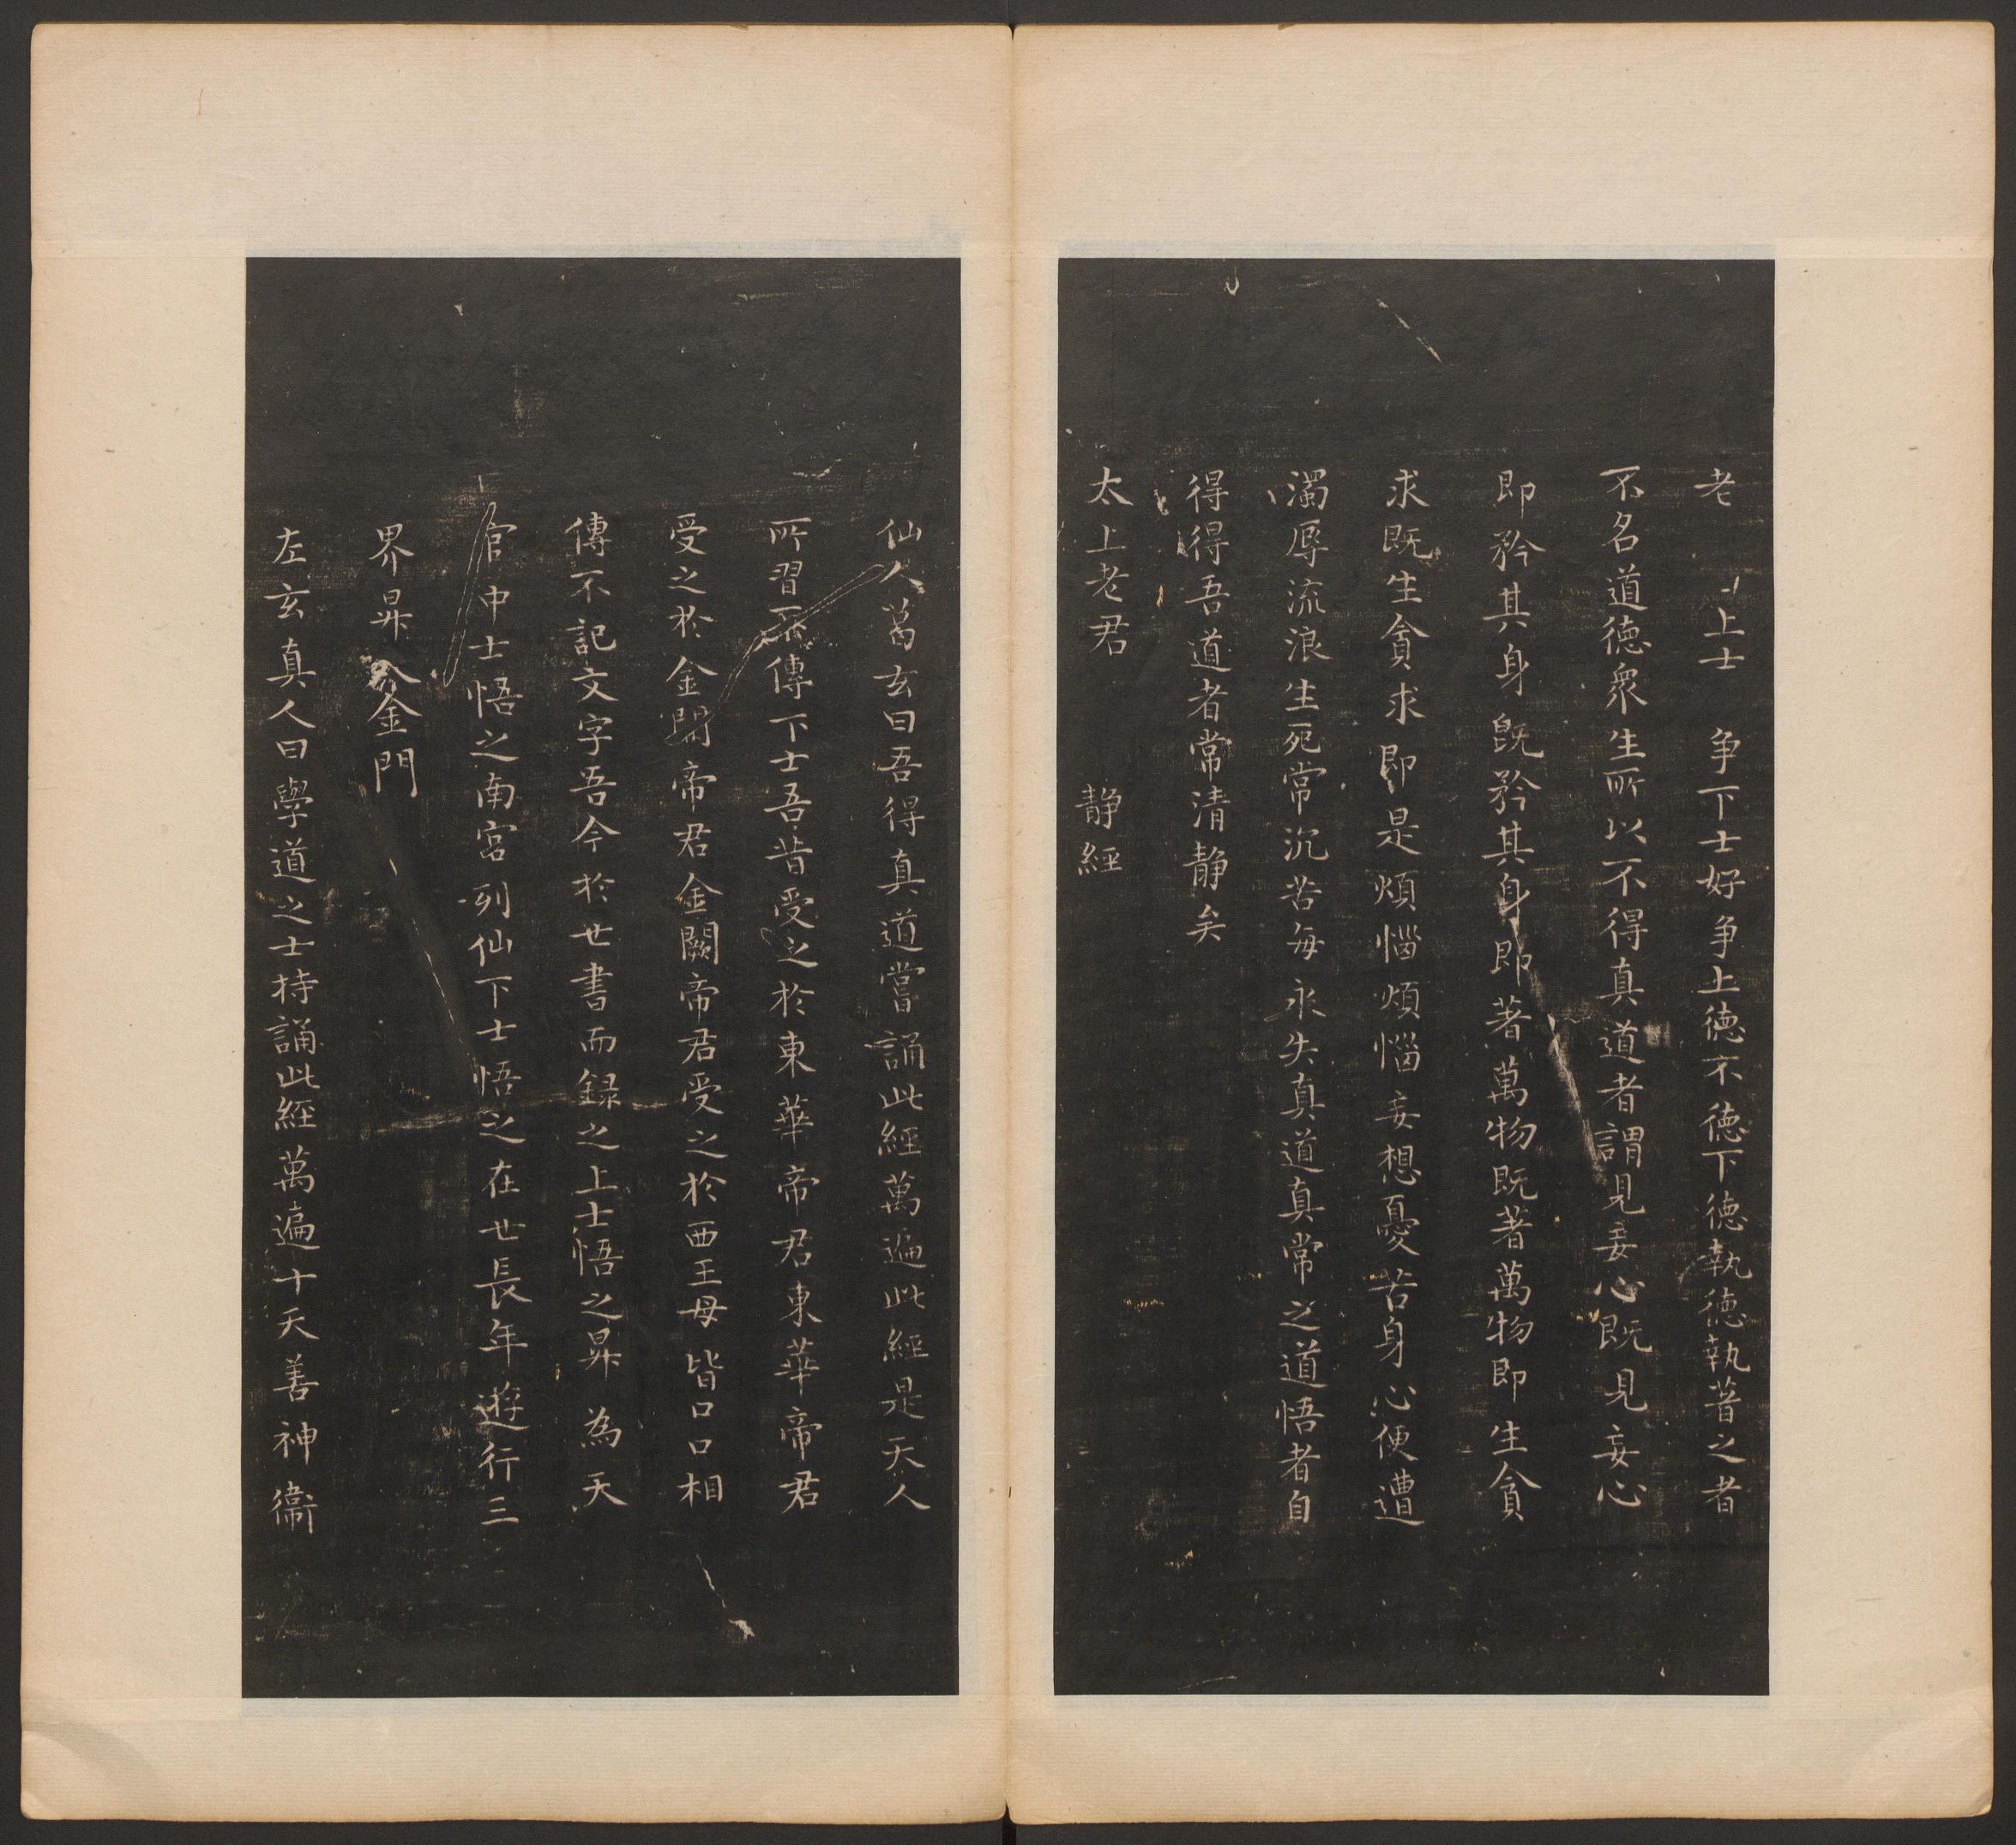 老 上士 争下士好争上徳不徳下徳執徳執著之者
不名道徳衆生所以不得真道者謂見妄心既見妄心
即矜其身既矜其身即著萬物既著萬物即生貪
求既生貪求即是煩惱煩惱妄想憂苦身心便遭
濁辱流浪生死常沉苦每永失真道真常之道悟者自
得得吾道者常清静矣
太上老君 静經
仙人葛玄曰吾得真道嘗誦此經萬遍此經是天人
所習不傳下士吾昔受之於東華帝君東華帝君
受之於金闕帝君金闕帝君受之於西王母皆口口相
傳不記文字吾今於世書而録之上士悟之昇為天
官中士悟之南宮列仙下士悟之在世長年遊行三
界昇 金門
左玄真人曰學道之士持誦此經萬遍十天善神衞